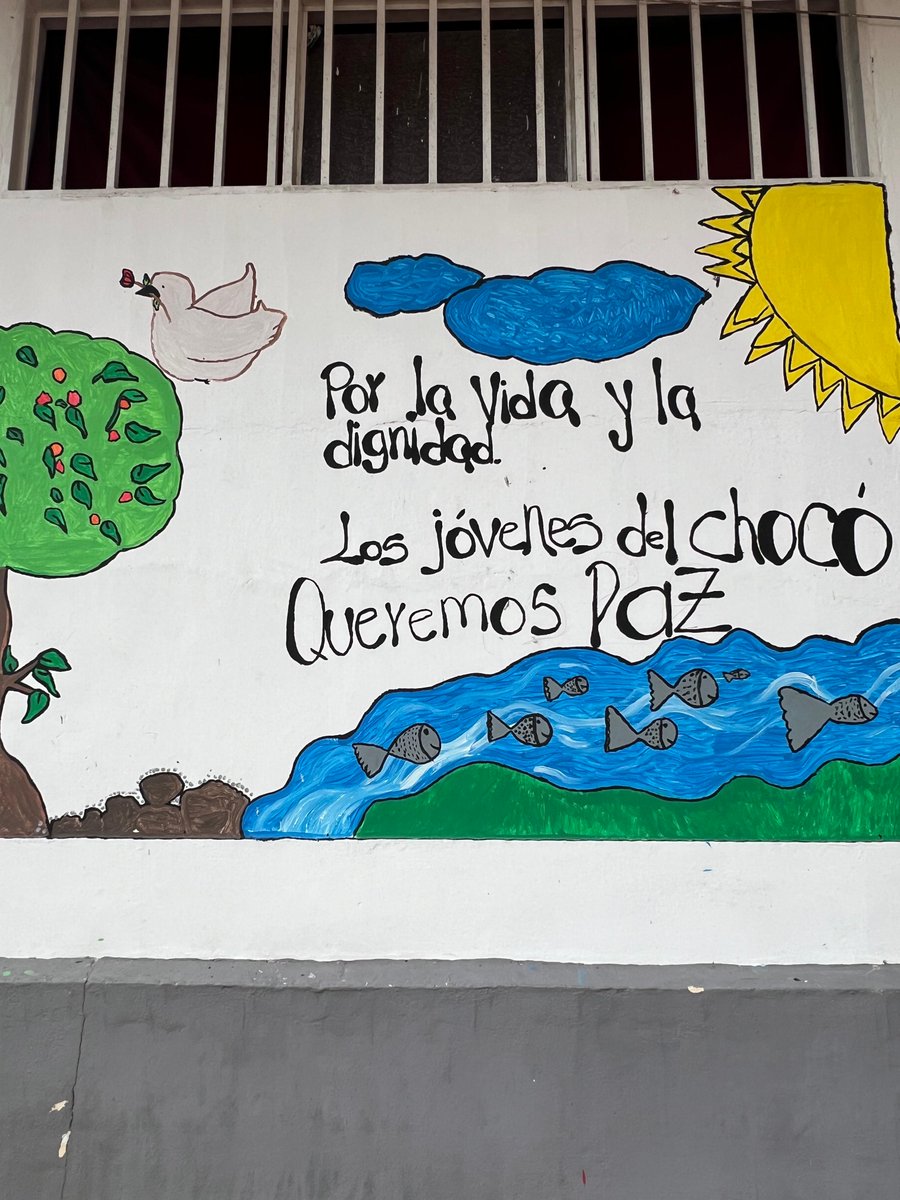 Por la vida y la
dignidad.
Los jóvenes del chocó
Queremos Paz